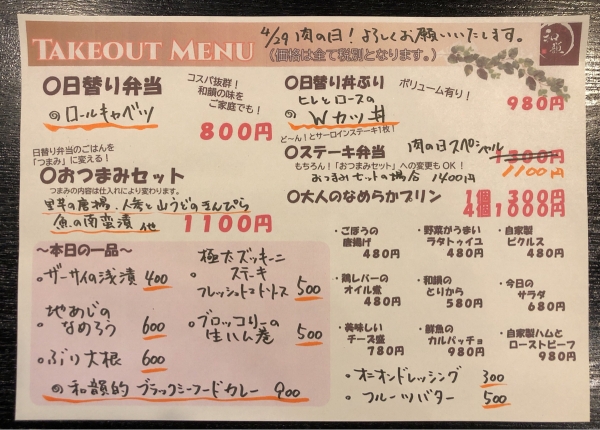 TAKEOUT MENU
4/29 肉の日！よろしくお願いいたします。
（価格は全て税別となります。）
〇日替り弁当
コスパ抜群！
和韻の味を
ご家庭でも！
のロールキャベツ
800円
〇日替り丼ぶり
ボリューム有り！
ヒレとロースの
Wカツ丼
980円
日替り弁当のごはんを
「つまみ」に変える！
〇おつまみセット
つまみの内容は仕入れにより変わります。
里芋の唐揚、人参と山うどのきんぴら
魚の南蛮漬 他
1100円
ど～ん！とサーロインステーキ1枚！
〇ステーキ弁当
肉の日スペシャル
1300円
1100円
もちろん！「おつまみセット」への変更もOK！
おつまみセットの場合 1400円
〇大人のなめらかプリン
1個 300円
4個1000円
～本日の一品～
・ザーサイの浅漬 400
・地あじの
なめろう 600
・ぶり大根 600
・極太ズッキーニ
ステーキ
フレッシュトマトソース 500
・ブロッコリーの
生ハム巻 500
の和韻的 ブラックシーフードカレー 900
・ごぼうの
唐揚げ
480円
・野菜がうまい
ラタトゥイユ
480円
・自家製
ピクルス
480円
・鶏レバーの
オイル煮
480円
・和韻の
とりから
580円
・今日の
サラダ
680円
・美味しい
チーズ盛
780円
・鮮魚の
カルパッチョ
980円
・自家製ハムと
ローストビーフ
980円
・オニオンドレッシング 300
・フルーツバター 500